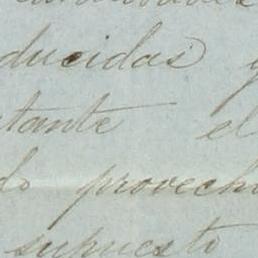 ducidas y
tante el
do provecho
supuesto